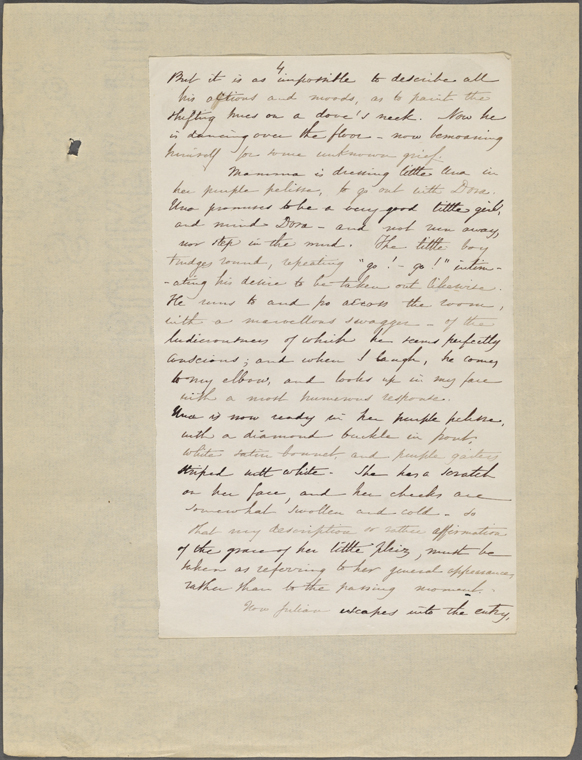 4
But it is as impossible to describe all
his actions and moods, as to paint the
shifting hues on a dove's neck. Now he
is dancing over the floor – now bemoaning
himself for some unknown grief.
Mamma is dressing little Una in
her purple pelisse, to go out with Dora.
Una promises to be a very good little girl,
and mind Dora – and not run away,
nor step in the mud. The little boy
trudges round, repeating "go! – go!" intim-
-ating his desire to be taken out likewise.
He runs to and fro across the room,
with a marvellous swagger – of the
ludicrousness of which he seems perfectly
conscious; and when I laugh, he comes
to my elbow, and looks up in my face
with a most humorous response.
Una is now ready in her purple pelisse,
with a diamond buckle in front,
white satin bonnet, and purple gaiters
striped with white – She has a scratch
on her face, and her cheeks are
somewhat swollen and cold – so
that my description or rather affirmation
of the grace of her little , must be
taken as referring to her general appearances
rather than to the passing moment.
Now Julian escapes into the entry,